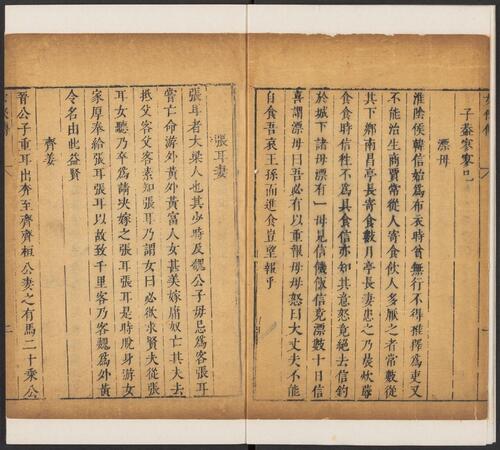 子蓋寥寥已
漂母
淮陰侯韓信始爲布衣時貧無行不得推擇爲吏又
不能治生商賈常從人寄食飲人多厭之者常數從
其下鄉南昌亭長寄食數月亭長妻患之乃晨炊蓐
食食時信往不爲具食信亦知其意怒竟絕去信釣
於城下諸母漂有一母見信饑飯信竟漂數十日信
喜謂漂母曰吾必有以重報母母怒曰大丈夫不能
自食吾哀王孫而進食豈望報乎
張耳妻
張耳者大梁人也其少時及魏公子毋忌爲客張耳
嘗亡命游外黃外黃富人女甚美嫁庸奴亡其夫去
抵父客父客素知張耳乃謂女曰必欲求賢夫從張
耳女聽乃卒爲請决嫁之張耳張耳是時脫身游女
家厚奉給張耳張耳以故致千里客乃客魏爲外黃
令名由此益賢
齊姜
晉公子重耳出奔至齊齊桓公妻之有馬二十乘公